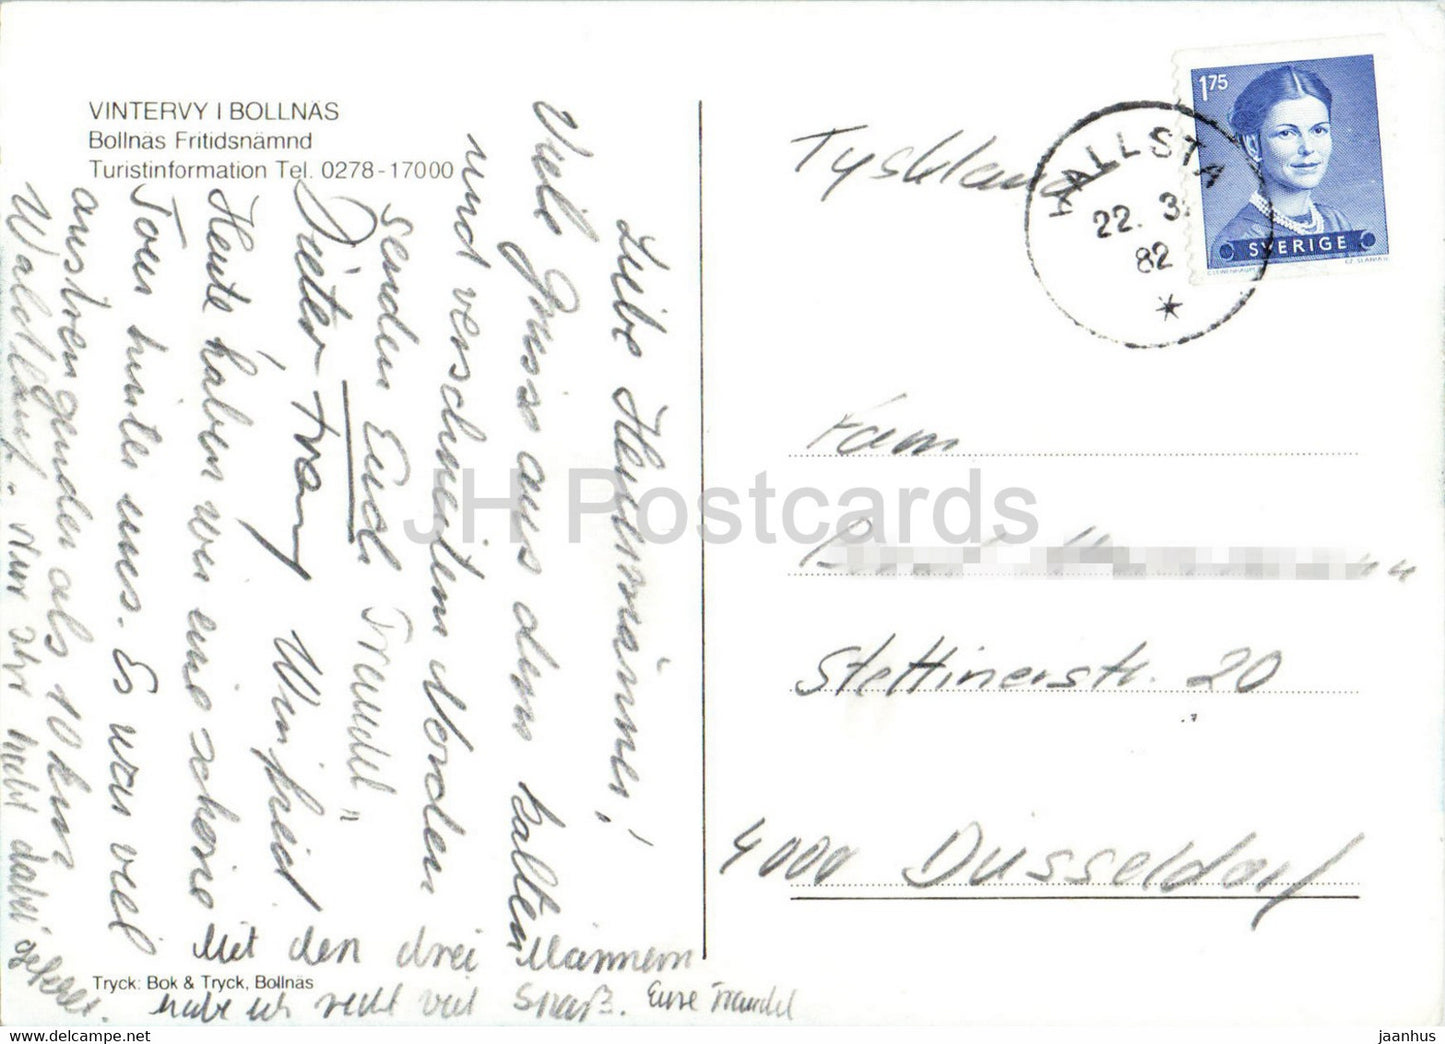 VINTERVY I BOLLNÄS
Bollnäs Fritidsnämnd
Turistinformation Tel. 0278-17000
Liebe Heulmänner!
Viele Grüsse aus dem kalten
und verschneitem Norden
senden Euch "Traudel"
Dieter + Winfried
Heute haben wir eine schöne
Tour hinter uns. Es war viel
anstrengender als 10 km
Waldlauf. Nur Ihr habt dabei gefehlt.
Mit den drei Männern
habe ich recht viel Spaß. Eure Traudel
Tryck: Bok & Tryck, Bollnäs
Tyskland
HALLSTA
22. 3.
82
175
SVERIGE
Fam
Stettinerstr. 20
4000 Düsseldorf
JH Postcards
www.delcampe.net
jaanhus